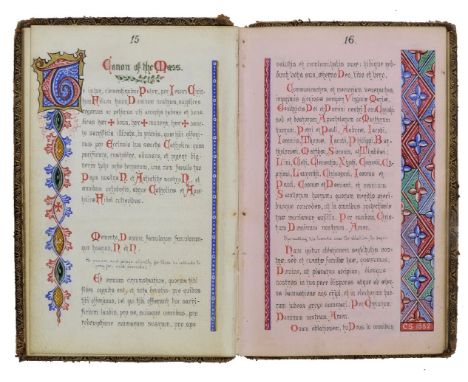 15
Canon of the Mass.
Te igitur, clementissime Pater, per Jesum Chris-
tum Filium tuum Dominum nostrum, supplices
rogamus ac petimus uti accepta habeas et bene-
dicas hæc ✠ dona, hæc ✠ munera, hæc ✠ sanc-
ta sacrificia illibata, in primis, quæ tibi offeri-
mus pro Ecclesia tua sancta Catholica, quam
pacificare, custodire, adunare, et regere dig-
neris toto orbe terrarum, una cum famulo tuo
Papa nostro N. et Antistite nostro N. et
omnibus orthodoxis, atque Catholicæ et Apos-
tolicæ fidei cultoribus.
Memento, Domine, famulorum famularum-
que tuarum, N. et N.
Et omnium circumstantium, quorum tibi
fides cognita est, et nota devotio: pro quibus
tibi offerimus, vel qui tibi offerunt hoc sacri-
ficium laudis, pro se, suisque omnibus, pro
redemptione animarum suarum, pro spe
16.
salutis et incolumitatis suæ: tibique red-
dunt vota sua, æterno Deo, vivo et vero.
Communicantes, et memoriam venerantes
in primis gloriosæ semper Virginis Mariæ,
Genitricis Dei et Domini nostri Jesu Christi:
sed et beatorum Apostolorum ac Martyrum
tuorum, Petri et Pauli, Andreæ, Jacobi,
Joannis, Thomæ, Jacobi, Philippi, Bar-
tholomæi, Matthæi, Simonis, et Thaddæi:
Lini, Cleti, Clementis, Xysti, Cornelii, Cy-
priani, Laurentii, Chrysogoni, Joannis et
Pauli, Cosmæ et Damiani, et omnium
Sanctorum tuorum: quorum meritis preci-
busque concedas, ut in omnibus protectionis
tuæ muniamur auxilio. Per eundem Chris-
tum Dominum nostrum. Amen.
Hanc igitur oblationem servitutis nos-
træ, sed et cunctæ familiæ tuæ, quæsumus,
Domine, ut placatus accipias: diesque
nostros in tua pace disponas, atque ab æter-
na damnatione nos eripi, et in electorum tuo-
rum jubeas grege numerari. Per Christum
Dominum nostrum. Amen.
Quam oblationem, tu Deus in omnibus